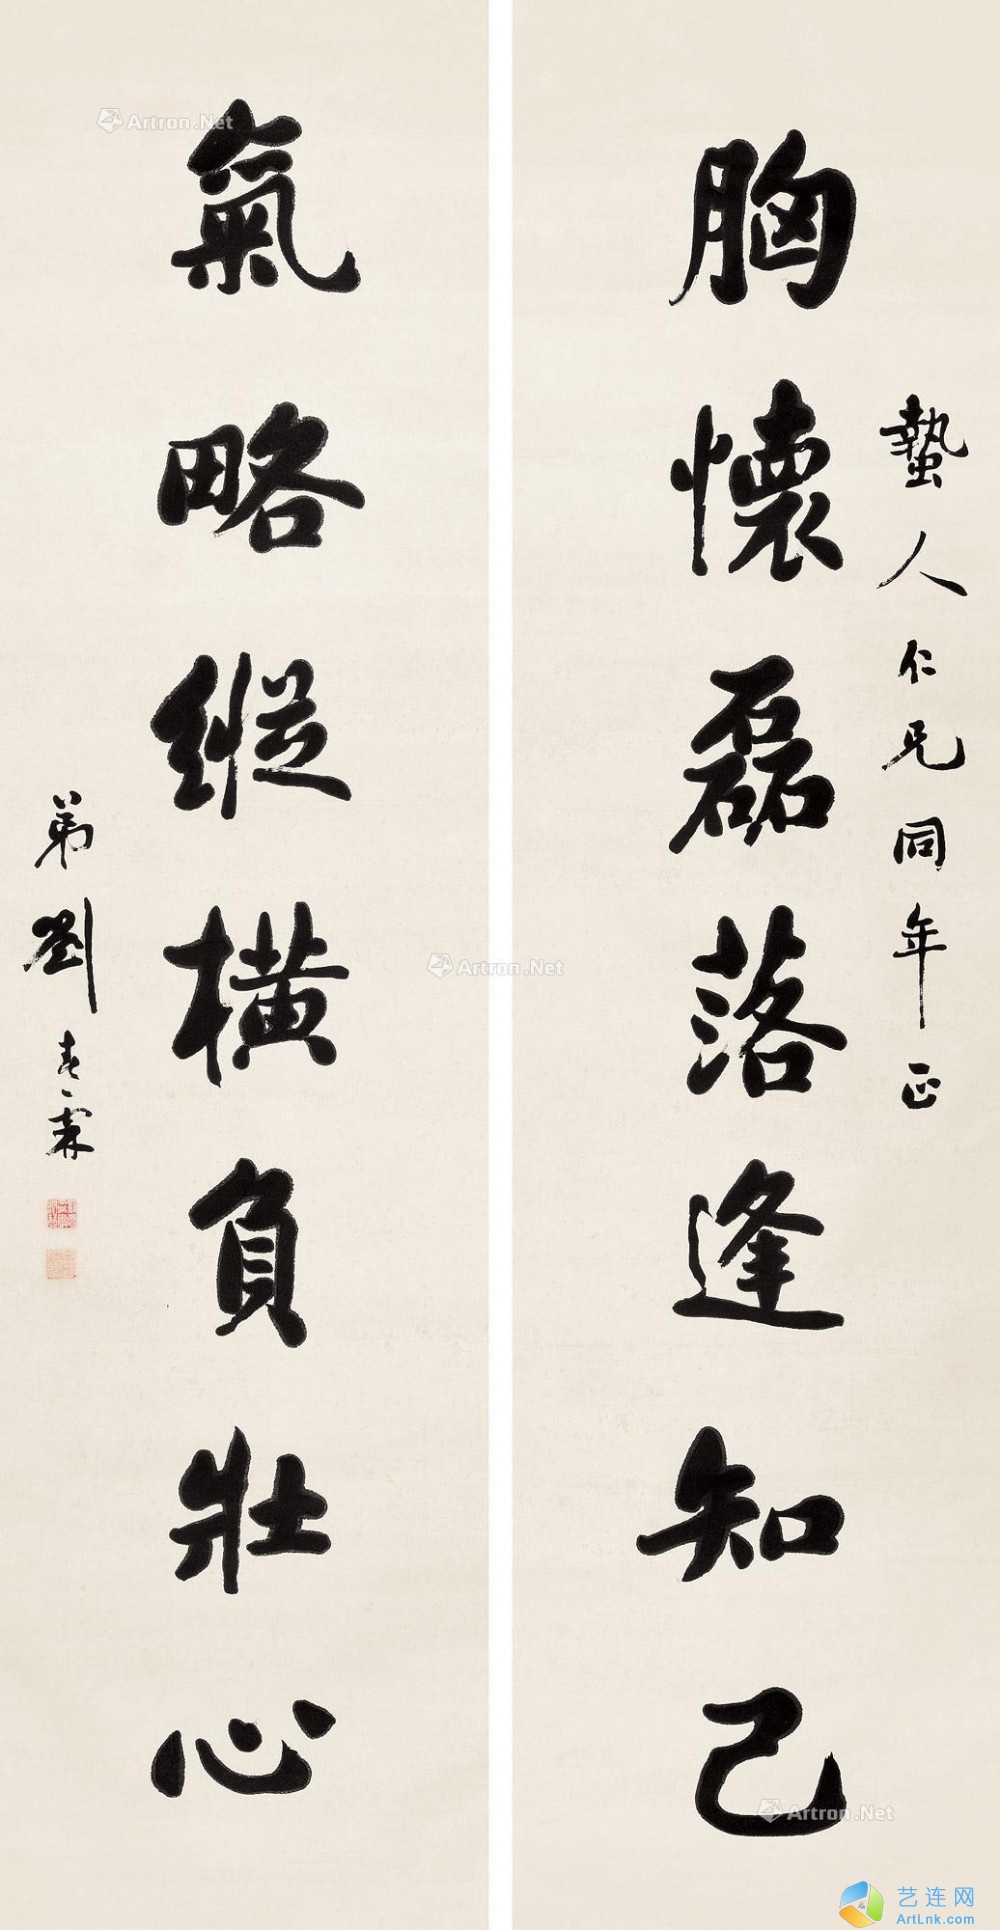 蟄人仁兄同年正
胸懷磊落逢知己
氣略縱橫負壯心
弟劉春霖
Artron.Net
Artron.Net
Artron.Net
艺连网
ArtLnk.com